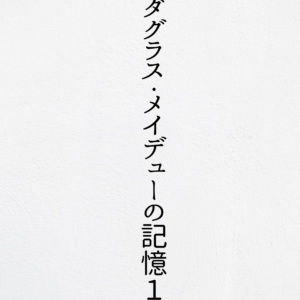 ダグラス・メイデューの記憶1